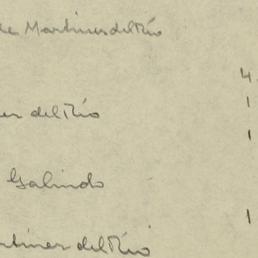 de Martinez del Río
4
1
ez del Río
1
Galindo
1
artinez del Río